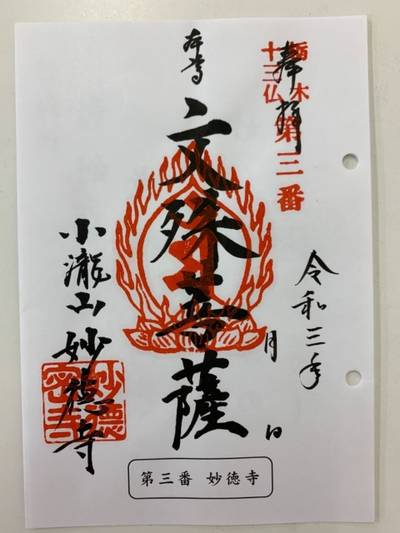 奉拝
栃木
十三仏
第三番
令和三年
月
日
本尊
文殊菩薩
小瀧山 妙徳寺
妙徳
密寺
第三番 妙徳寺